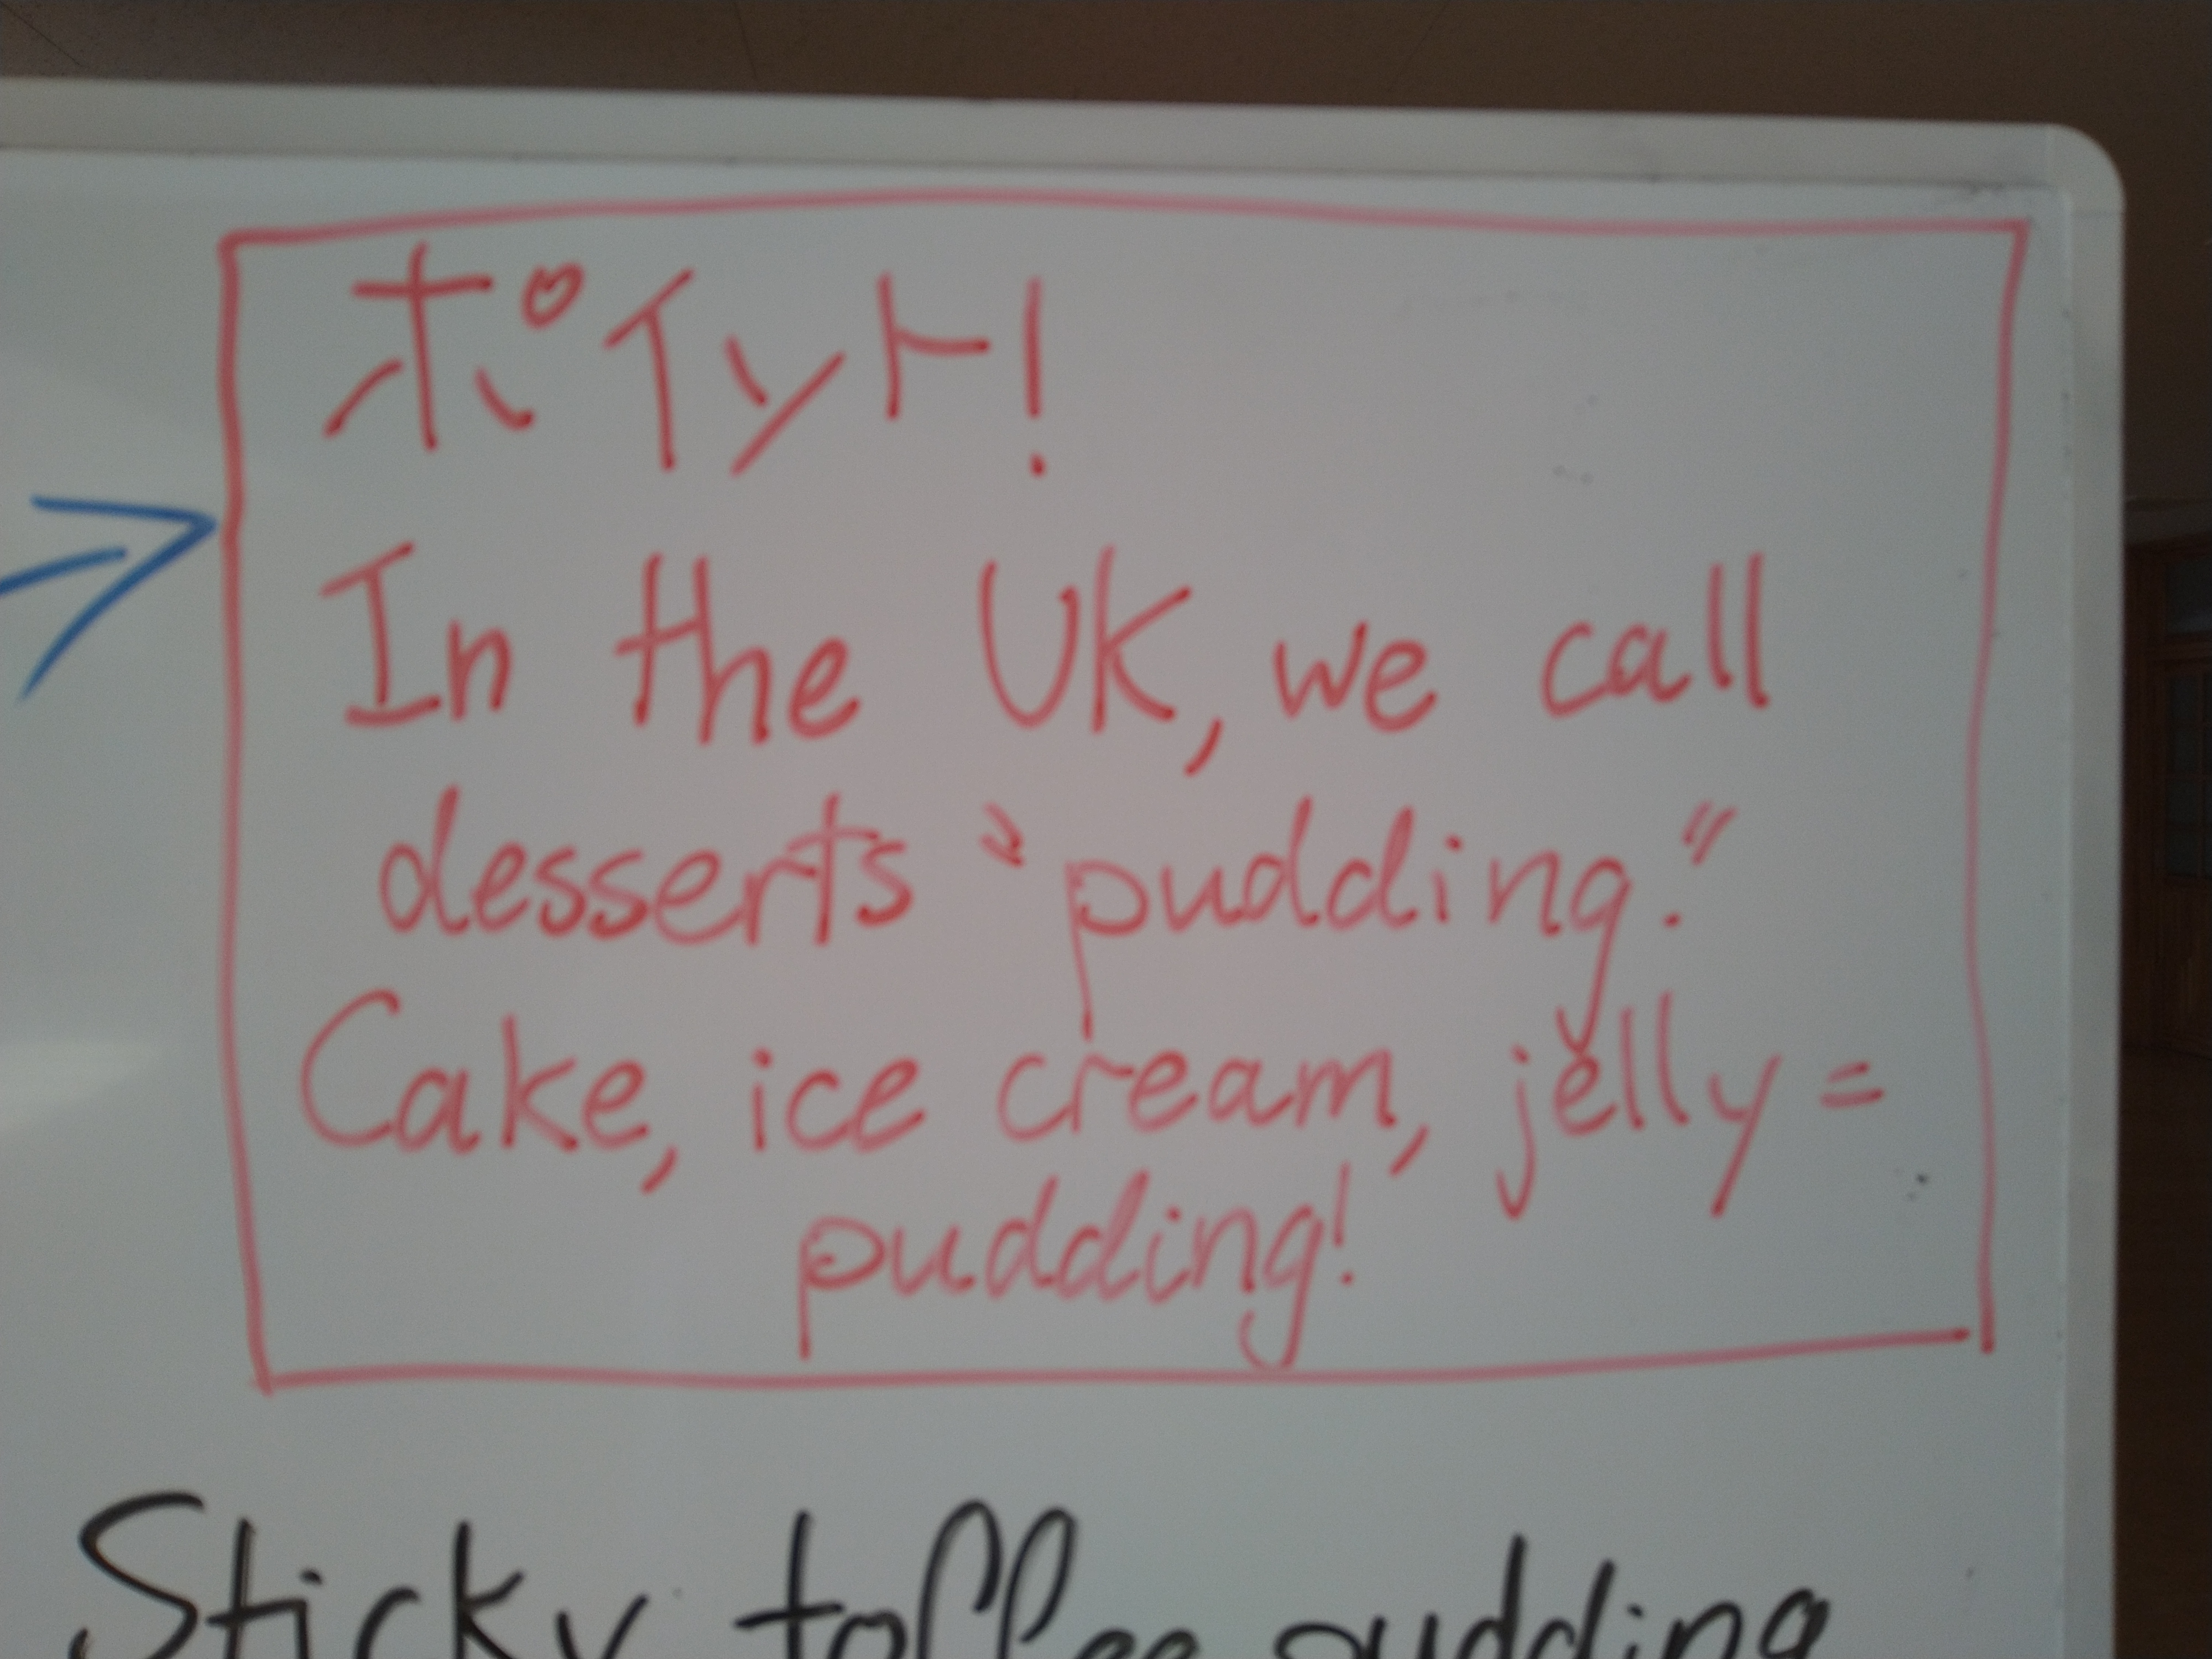 ポイント!
In the UK, we call
desserts "pudding."
Cake, ice cream, jelly =
pudding!
Sticky toffee pudding